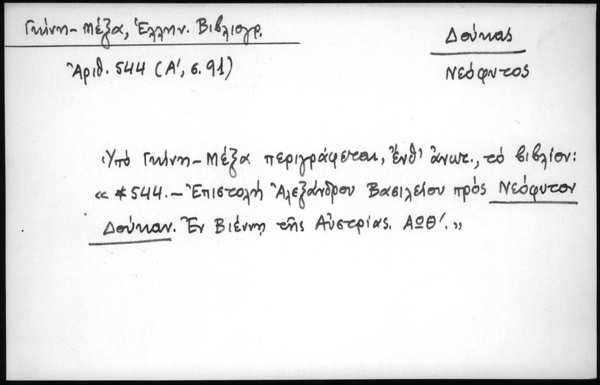 Γκίνη-Μέξα, Ἑλλην. Βιβλιογρ.
Δούκας
Ἀριθ. 544 (Α', σ. 91)
Νεόφυτος
Ὑπό Γκίνη-Μέξα περιγράφεται, ἔνθ' ἀνωτ., τό βιβλίον:
« *544.- Ἐπιστολή Ἀλεξάνδρου Βασιλείου πρός Νεόφυτον
Δούκαν. Ἐν Βιέννῃ τῆς Αὐστρίας. ΑΩΘ'.»